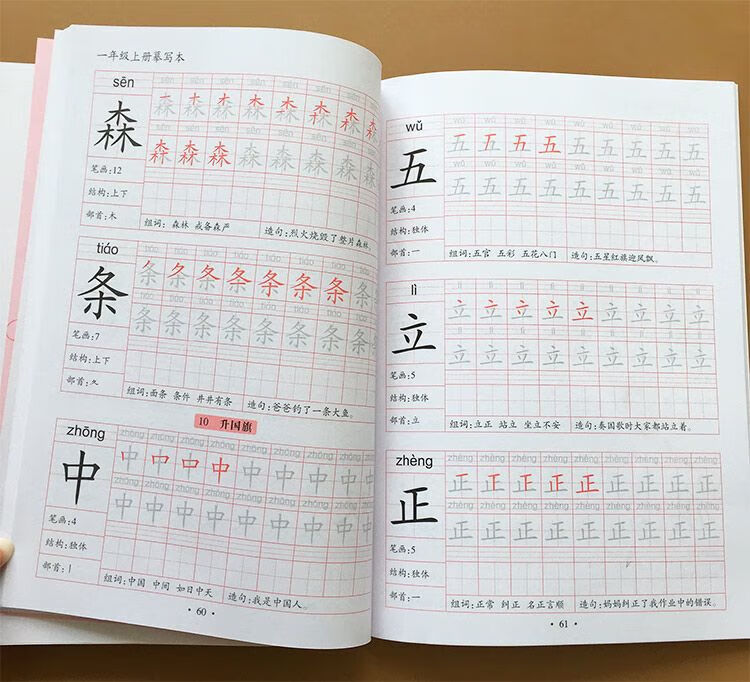 一年级上册摹写本
sēn
sēn sēn sēn sēn sēn sēn sēn
森
森 森 森 森 森 森 森
sēn sēn sēn sēn sēn sēn sēn
森 森 森 森 森 森 森
笔画:12
结构:上下
部首:木
组词: 森林 戒备森严 造句:烈火烧毁了整片森林。
tiáo
tiáo tiáo tiáo tiáo tiáo tiáo tiáo tiáo
条
条 条 条 条 条 条 条 条
tiáo tiáo tiáo tiáo tiáo tiáo tiáo tiáo
条 条 条 条 条 条 条 条
笔画:7
结构:上下
部首:夂
组词:面条 条件 井井有条 造句:爸爸钓了一条大鱼。
10 升国旗
zhōng
zhōng zhōng zhōng zhōng zhōng zhōng zhōng zhōng
中
中 中 中 中 中 中 中 中
zhōng zhōng zhōng zhōng zhōng zhōng zhōng zhōng
中 中 中 中 中 中 中 中
笔画:4
结构:独体
部首:丨
组词:中国 中间 如日中天 造句:我是中国人。
·60·
wǔ
wǔ wǔ wǔ wǔ wǔ wǔ wǔ wǔ
五
五 五 五 五 五 五 五 五
wǔ wǔ wǔ wǔ wǔ wǔ wǔ wǔ
五 五 五 五 五 五 五 五
笔画:4
结构:独体
部首:一
组词:五官 五彩 五花八门 造句:五星红旗迎风飘。
lì
lì lì lì lì lì lì lì lì lì
立
立 立 立 立 立 立 立 立 立
lì lì lì lì lì lì lì lì lì
立 立 立 立 立 立 立 立 立
笔画:5
结构:独体
部首:立
组词:立正 站立 坐立不安 造句:奏国歌时大家都站立着。
zhèng
zhèng zhèng zhèng zhèng zhèng zhèng zhèng zhèng
正
正 正 正 正 正 正 正 正
zhèng zhèng zhèng zhèng zhèng zhèng zhèng zhèng
正 正 正 正 正 正 正 正
笔画:5
结构:独体
部首:一
组词:正常 纠正 名正言顺 造句:妈妈纠正了我作业中的错误。
·61·